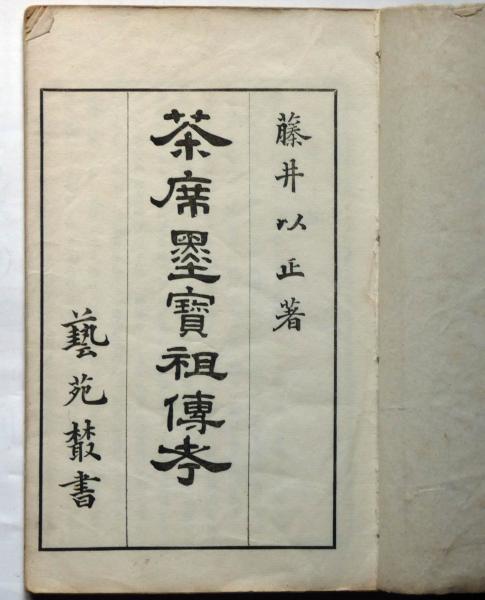 藤井以正著
茶席墨寶祖傳考
藝苑叢書